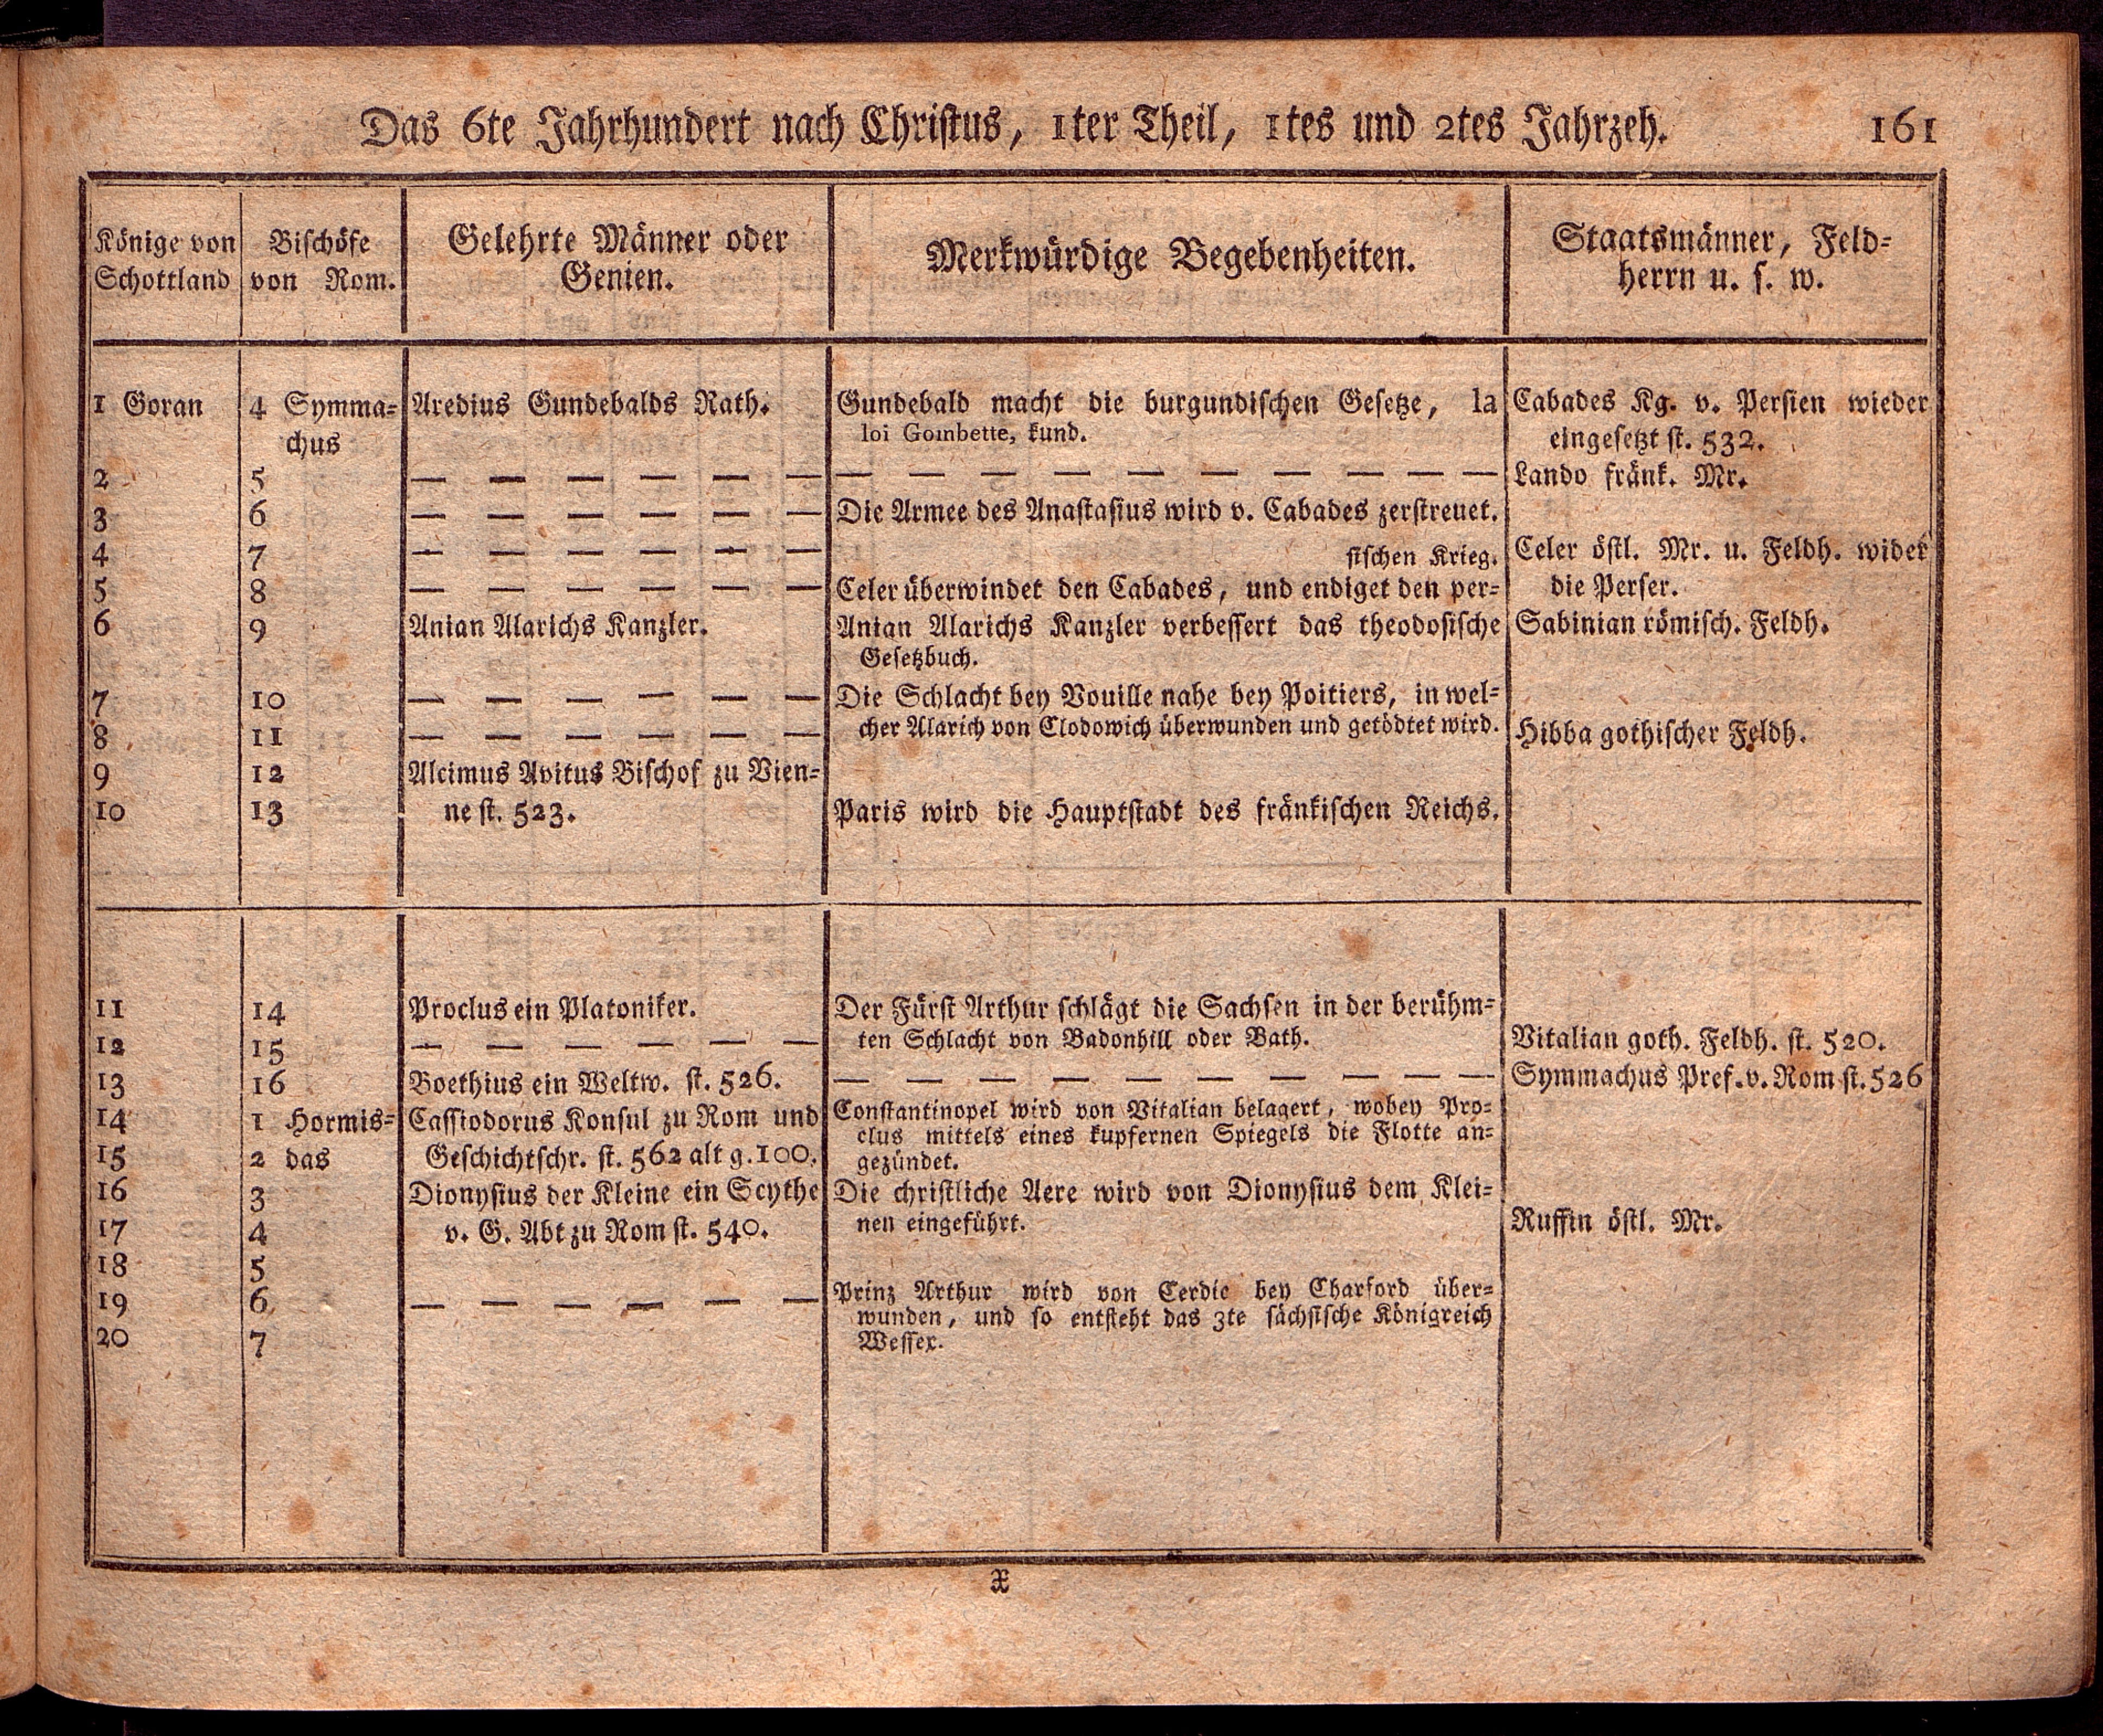 Das 6te Jahrhundert nach Christus, 1ter Theil, 1tes und 2tes Jahrzeh. 161
Könige von
Schottland
Bischöfe
von Rom.
Gelehrte Männer oder
Genien.
Merkwürdige Begebenheiten.
Staatsmänner, Feld-
herrn u. s. w.
1 Goran
2
3
4
5
6
7
8
9
10
4 Symma-
chus
5
6
7
8
9
10
11
12
13
Aredius Gundebalds Rath.
— — — — — —
— — — — — —
— — — — — —
— — — — — —
Anian Alarichs Kanzler.
— — — — — —
— — — — — —
Alcimus Avitus Bischof zu Vien-
ne st. 523.
Gundebald macht die burgundischen Gesetze, la
loi Gombette, kund.
— — — — — — — — — —
Die Armee des Anastasius wird v. Cabades zerstreuet.
sischen Krieg.
Celer überwindet den Cabades, und endiget den per-
Anian Alarichs Kanzler verbessert das theodosische
Gesetzbuch.
Die Schlacht bey Vouille nahe bey Poitiers, in wel-
cher Alarich von Clodowich überwunden und getödtet wird.
Paris wird die Hauptstadt des fränkischen Reichs.
Cabades Kg. v. Persien wieder
eingesetzt st. 532.
Lando fränk. Mr.
Celer östl. Mr. u. Feldh. wider
die Perser.
Sabinian römisch. Feldh.
Hibba gothischer Feldh.
11
12
13
14
15
16
17
18
19
20
14
15
16
1 Hormis-
2 das
3
4
5
6
7
Proclus ein Platoniker.
— — — — — —
Boethius ein Weltw. st. 526.
Cassiodorus Konsul zu Rom und
Geschichtschr. st. 562 alt g. 100.
Dionysius der Kleine ein Scythe
v. G. Abt zu Rom st. 540.
— — — — — —
Der Fürst Arthur schlägt die Sachsen in der berühm-
ten Schlacht von Badonhill oder Bath.
— — — — — — — — — —
Constantinopel wird von Vitalian belagert, wobey Pro-
clus mittels eines kupfernen Spiegels die Flotte an-
gezündet.
Die christliche Aere wird von Dionysius dem Klei-
nen eingeführt.
Prinz Arthur wird von Cerdic bey Charford über-
wunden, und so entsteht das 3te sächsische Königreich
Wessex.
Vitalian goth. Feldh. st. 520.
Symmachus Pref. v. Rom st. 526
Ruffin östl. Mr.
X